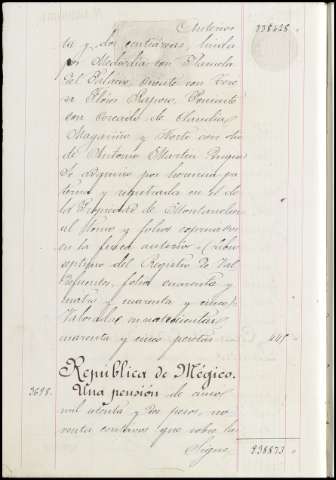 Anterior 938428
ta y dos centiáreas, linda
por Mediodía con Manuela
del Palacio, Oriente con Tere
sa Flores Raposo, Poniente
con cercado de Claudia
Magariño y Norte con otro
de Antonio Martín
Se adquirió por herencia pa
terna y registrada en el de
la Propiedad de Montánchez
al tomo y folios expresados
en la finca anterior (Libro
séptimo del Registro de Val
defuentes, folio cuarenta y
cuatro y cuarenta y cinco).
Valorada en cuatrocientas
cuarenta y cinco pesetas 445
República de Mégico.
3698. Una pensión de cinco
mil ochenta y dos pesos, no
venta centavos que sobre la
Sigue, 938873